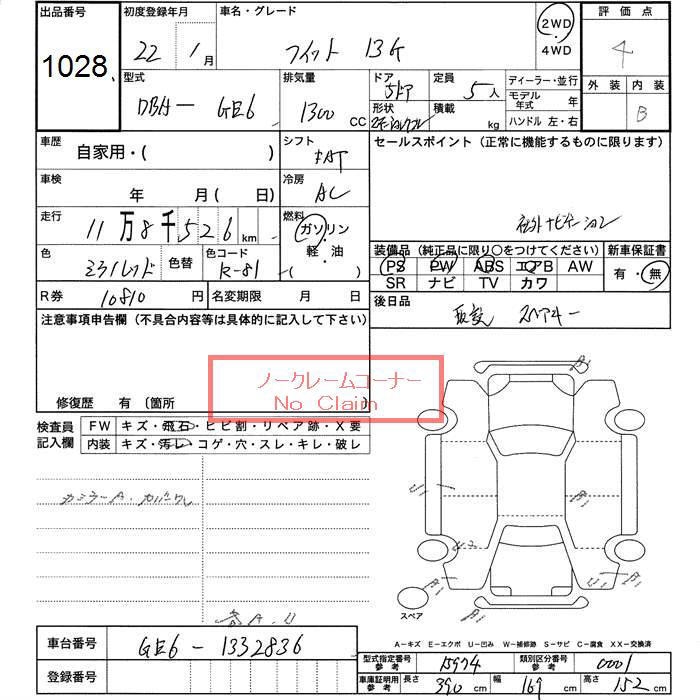 出品番号 初度登録年月 車名・グレード 2WD ・ 4WD 評価点
1028 22年 1月 フィット 13G 4
型式 排気量 ドア 5ドア 定員 5人 ディーラー・並行 外装 内装
DBA- GE6 1300 CC 形状 積載 kg モデル年式 年 B
ハンドル 左・右
車歴 自家用・( ) シフト FAT セールスポイント (正常に機能するものに限ります)
車検 年 月( 日) 冷房 AC
走行 11万8千526km 燃料 ガソリン・軽・油 ( ) 社外ナビゲーション
色 色替 色コード R-81
装備品 (純正品に限り○をつけてください) 新車保証書
PS PW ABS エアB AW 有・無
SR ナビ TV カワ
R券 10810円 名変期限 月 日 後日品 スペアキー
注意事項申告欄 (不具合内容等は具体的に記入して下さい)
ノークレームコーナー
No Claim
修復歴 有 〔箇所 〕
検査員記入欄 FW キズ・飛石・ヒビ割・リペア跡・X要
内装 キズ・汚レ・コゲ・穴・スレ・キレ・破レ
スペア
A-キズ E-エクボ U-凹み W-補修跡 S-サビ C-腐食 XX-交換済
車台番号 GE6-1332836
登録番号
型式指定番号 参考 15974 類別区分番号 参考 0001
車庫証明用 参考 長さ 390 cm 幅 169 cm 高さ 152 cm